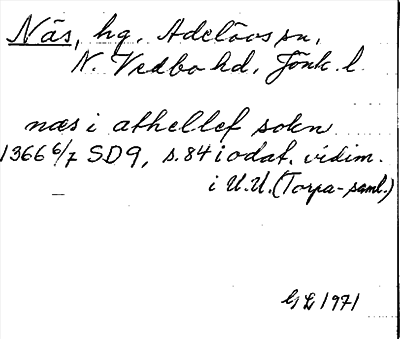 Näs, hg. Adelövs sn,
N. Vedbo hd, Jönk. l.
næs i athellef sokn
1366 6/7 SD9, s. 84 i odat. vidim.
i U.U. (Torpa-saml.)
GL 1971